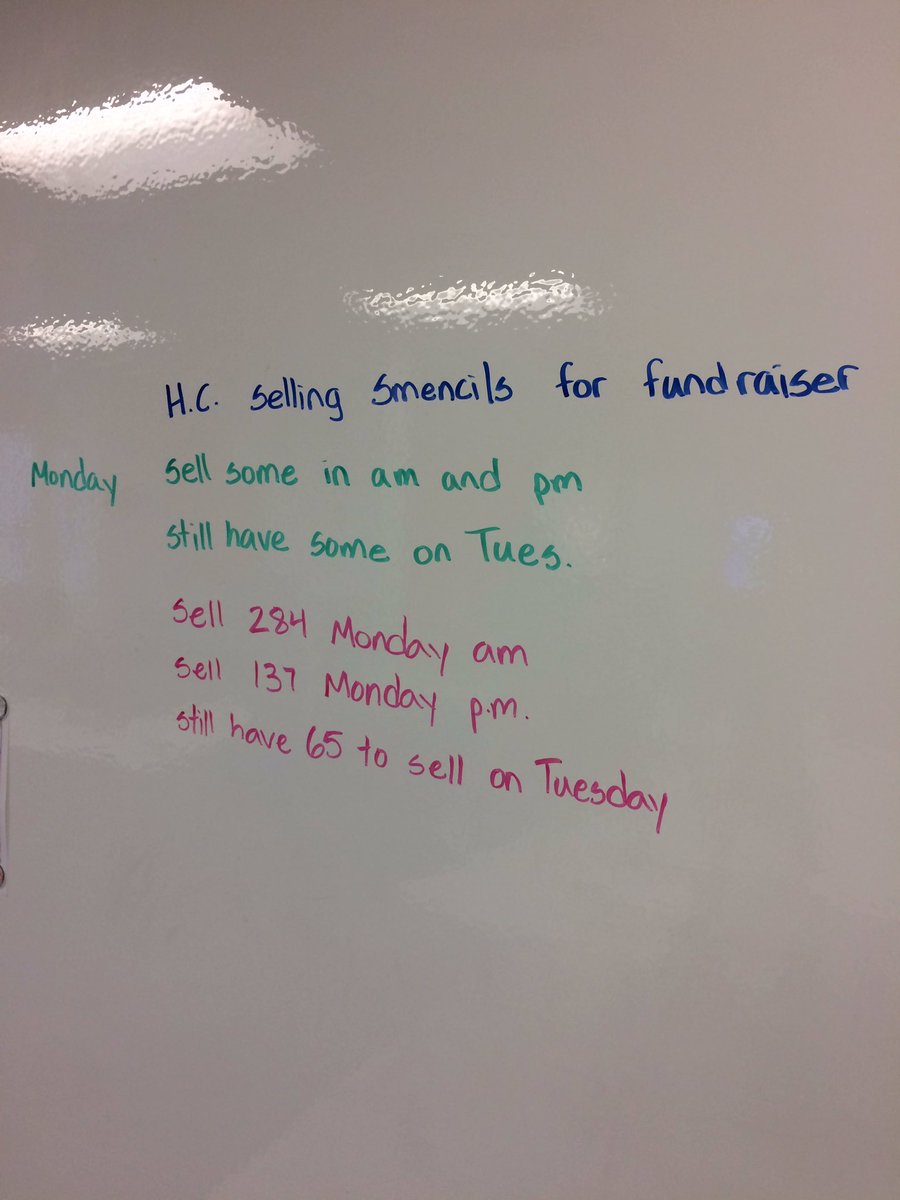 H.C. selling smencils for fundraiser
Monday sell some in am and pm
still have some on Tues.
sell 284 Monday am
sell 137 Monday p.m.
still have 65 to sell on Tuesday